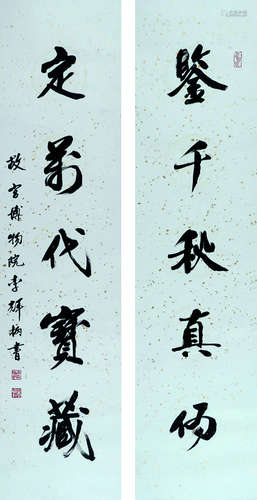 鑒千秋真偽
定萬代寶藏
故宮博物院李輝柄書